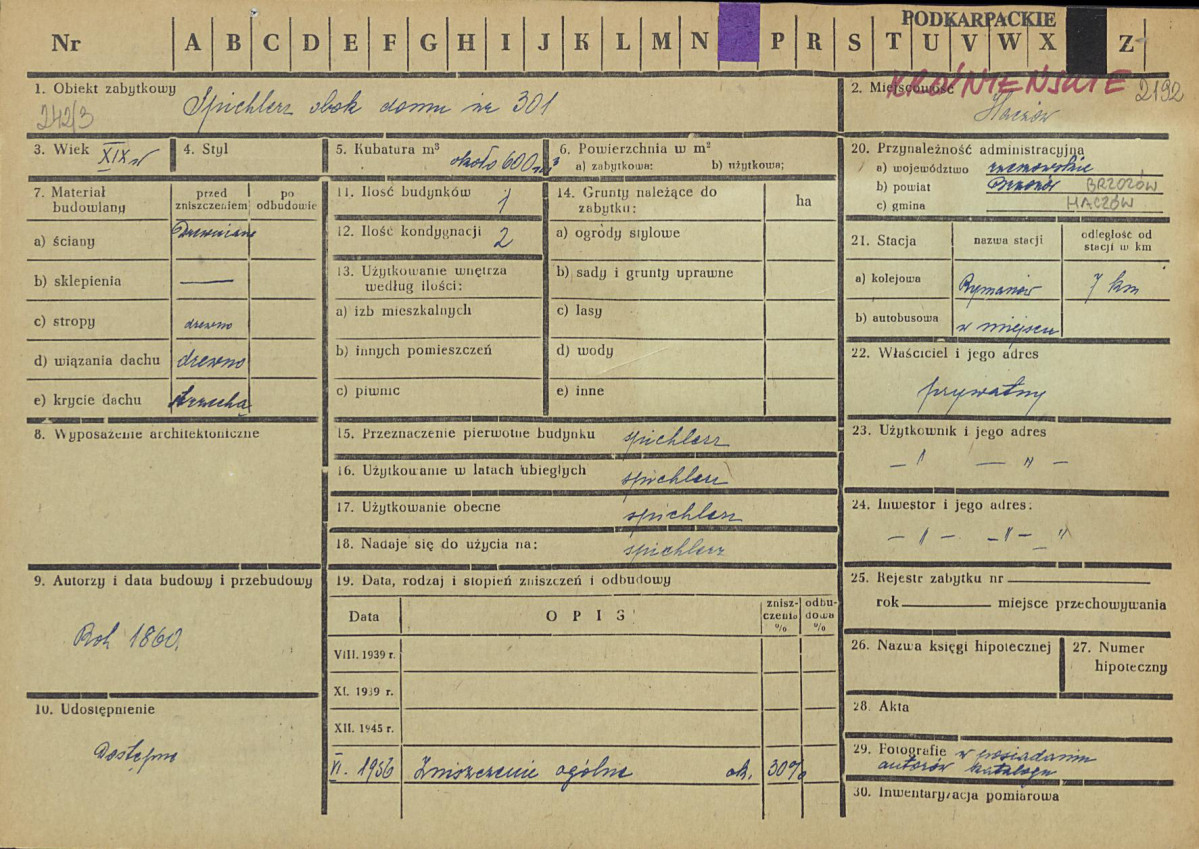 PODKARPACKIE
Nr A B C D E F G H I J K L M N P R S T U V W X Z
KROŚNIEŃSKIE
1. Obiekt zabytkowy
Spichlerz obok domu nr 301
242/3
2. Miejscowość
2192
Haczów
3. Wiek XIX w
4. Styl
5. Kubatura m³
około 600 m³
6. Powierzchnia w m²
a) zabytkowa: b) użytkowa:
7. Materiał budowlany
przed zniszczeniem
po odbudowie
a) ściany Drewniane
b) sklepienia —
c) stropy drewno
d) wiązania dachu drewno
e) krycie dachu strzecha
8. Wyposażenie architektoniczne
9. Autorzy i data budowy i przebudowy
Rok 1860.
10. Udostępnienie
Dostępne
11. Ilość budynków 1
12. Ilość kondygnacji 2
13. Użytkowanie wnętrza
według ilości:
a) izb mieszkalnych
b) innych pomieszczeń
c) piwnic
14. Grunty należące do
zabytku:
ha
a) ogrody stylowe
b) sady i grunty uprawne
c) lasy
d) wody
e) inne
15. Przeznaczenie pierwotne budynku spichlerz
16. Użytkowanie w latach ubiegłych spichlerz
17. Użytkowanie obecne spichlerz
18. Nadaje się do użycia na: spichlerz
19. Data, rodzaj i stopień zniszczeń i odbudowy
Data
OPIS
znisz-
czenia
%
odbu-
dowa
%
VIII. 1939 r.
XI. 1939 r.
XII. 1945 r.
VI. 1956 Zniszczenie ogólne ok. 30%
20. Przynależność administracyjna
a) województwo rzeszowskie
b) powiat Brzozów BRZOZÓW
c) gmina HACZÓW
21. Stacja
nazwa stacji
odległość od
stacji w km
a) kolejowa Rymanów 7 km
b) autobusowa w miejscu
22. Właściciel i jego adres
prywatny
23. Użytkownik i jego adres
— " — " —
24. Inwestor i jego adres:
— " — — " — "
25. Rejestr zabytku nr
rok miejsce przechowywania
26. Nazwa księgi hipotecznej
27. Numer
hipoteczny
28. Akta
29. Fotografie w posiadaniu
autorów katalogu
30. Inwentaryzacja pomiarowa